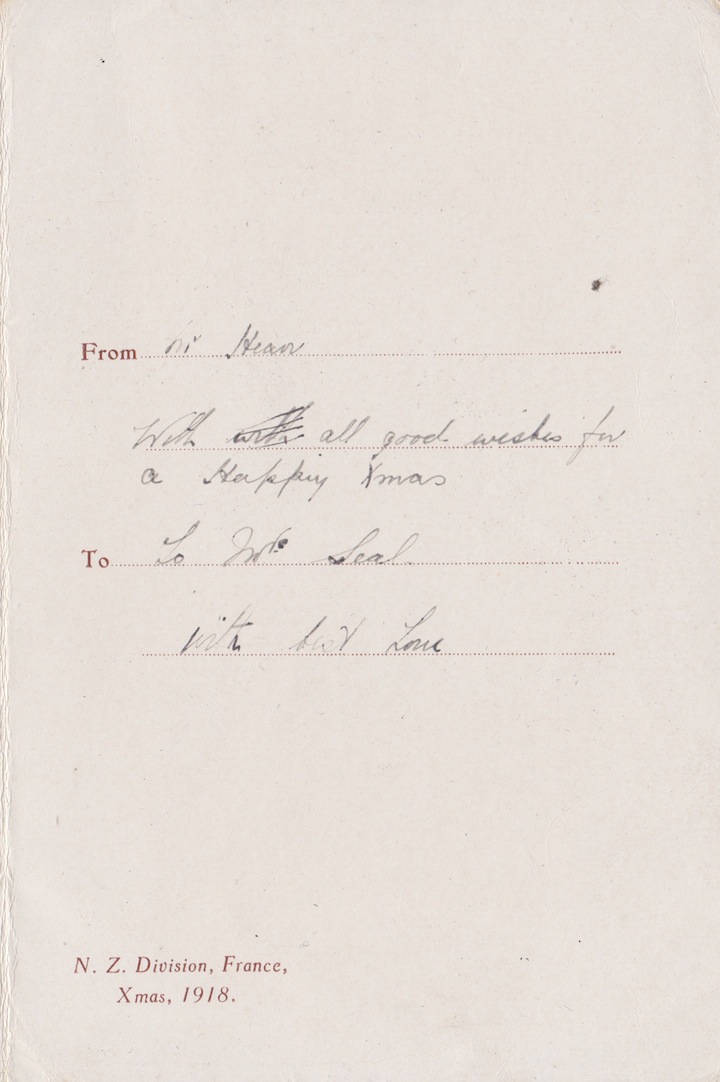 From
With with all good wishes for
a Happy Xmas
To To Mrs Seal
with best Love
N. Z. Division, France,
Xmas, 1918.